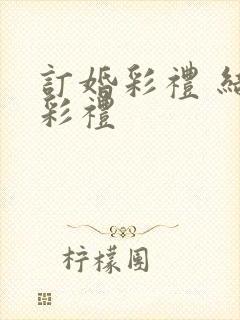 訂婚彩禮 結
彩禮
柠檬国